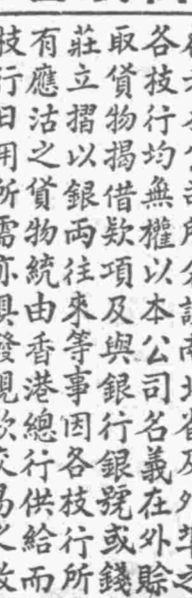 各技行均無權以本公司名義在外賒
取貨物揭借欵項及與銀行銀號或錢
莊立摺以銀両往來等事因各技行所
有應沽之貨物統由香港總行供給而
技行日用所需亦俱發現欵交易之故